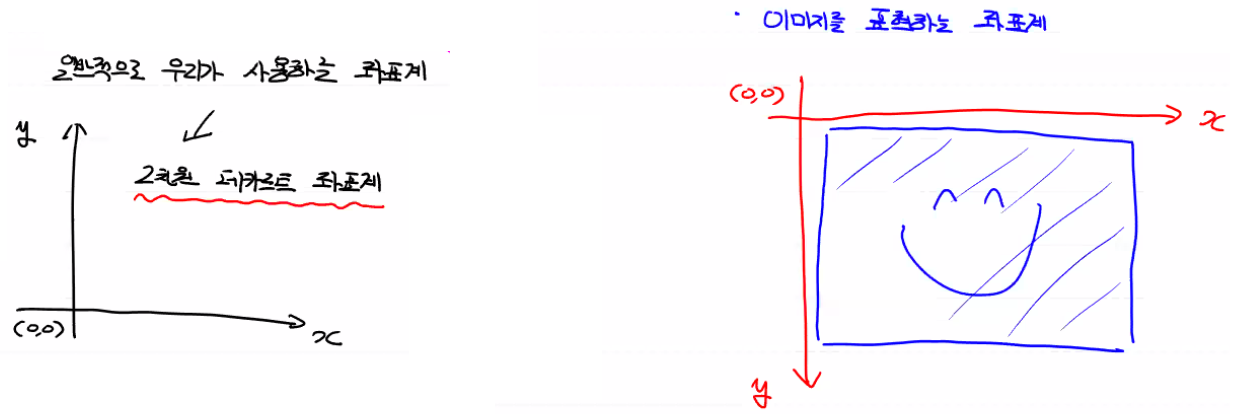 일반적으로 우리가 사용하는 좌표계
y
2차원 데카르트 좌표계
(0,0)
x
· 이미지를 표현하는 좌표계
(0,0)
x
y